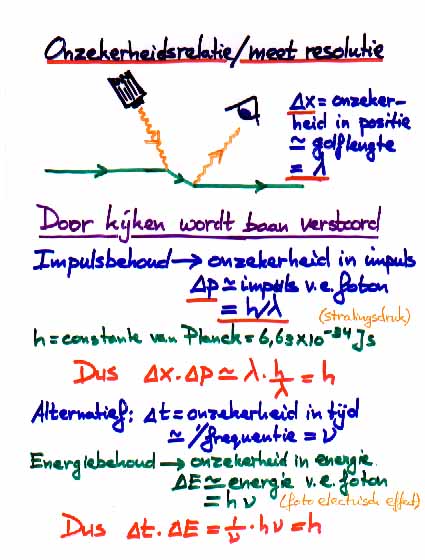 Onzekerheidsrelatie/meet resolutie
Δx = onzeker-
heid in positie
≃ golflengte
= λ
Door kijken wordt baan verstoord
Impulsbehoud → onzekerheid in impuls
Δp ≃ impuls v.e. foton
= h/λ
(stralingsdruk)
h = constante van Planck = 6,63×10⁻³⁴ Js
Dus Δx.Δp ≃ λ.h/λ = h
Alternatief: Δt = onzekerheid in tijd
≃ 1/frequentie = ν
Energiebehoud → onzekerheid in energie
ΔE ≃ energie v.e. foton
= hν (foto electrisch effect)
Dus Δt.ΔE = 1/ν.hν = h